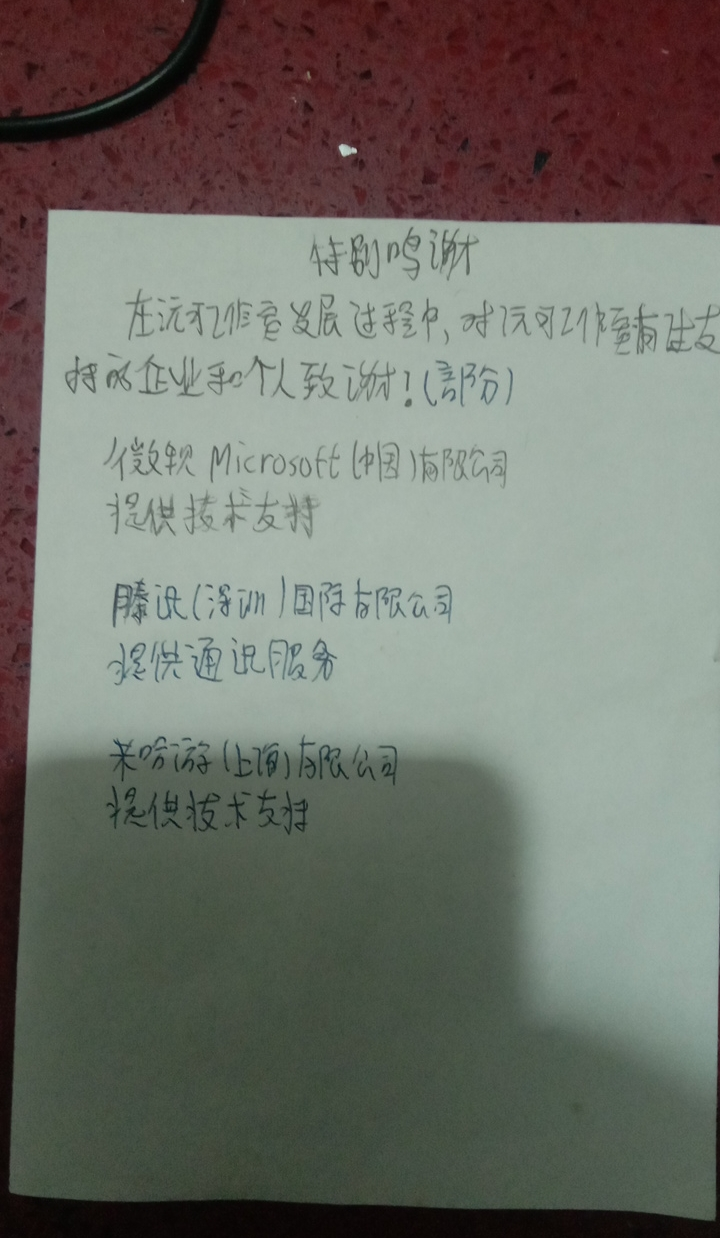 特别鸣谢
在沅可工作室发展过程中,对沅可工作室有过支
持的企业和个人致谢!(部分)
微软 Microsoft (中国)有限公司
提供技术支持
腾讯(深圳)国际有限公司
提供通讯服务
米哈游(上海)有限公司
提供技术支持